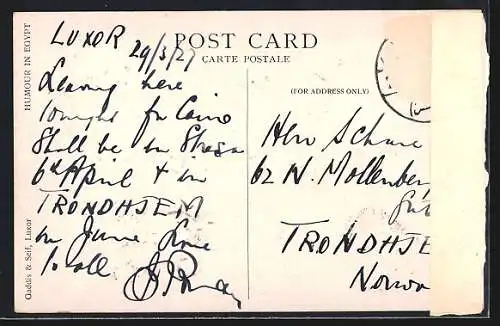 HUMOUR IN EGYPT
Gaddis & Seif, Luxor
POST CARD
CARTE POSTALE
(FOR ADDRESS ONLY)
LUXOR
29/3/27
Leaving here
tonight for Cairo
Shall be in Stresa
6th April & in
TRONDHJEM
in June Love
to all
Herr
62 N. Mollenber
TRONDHJE
Norwa